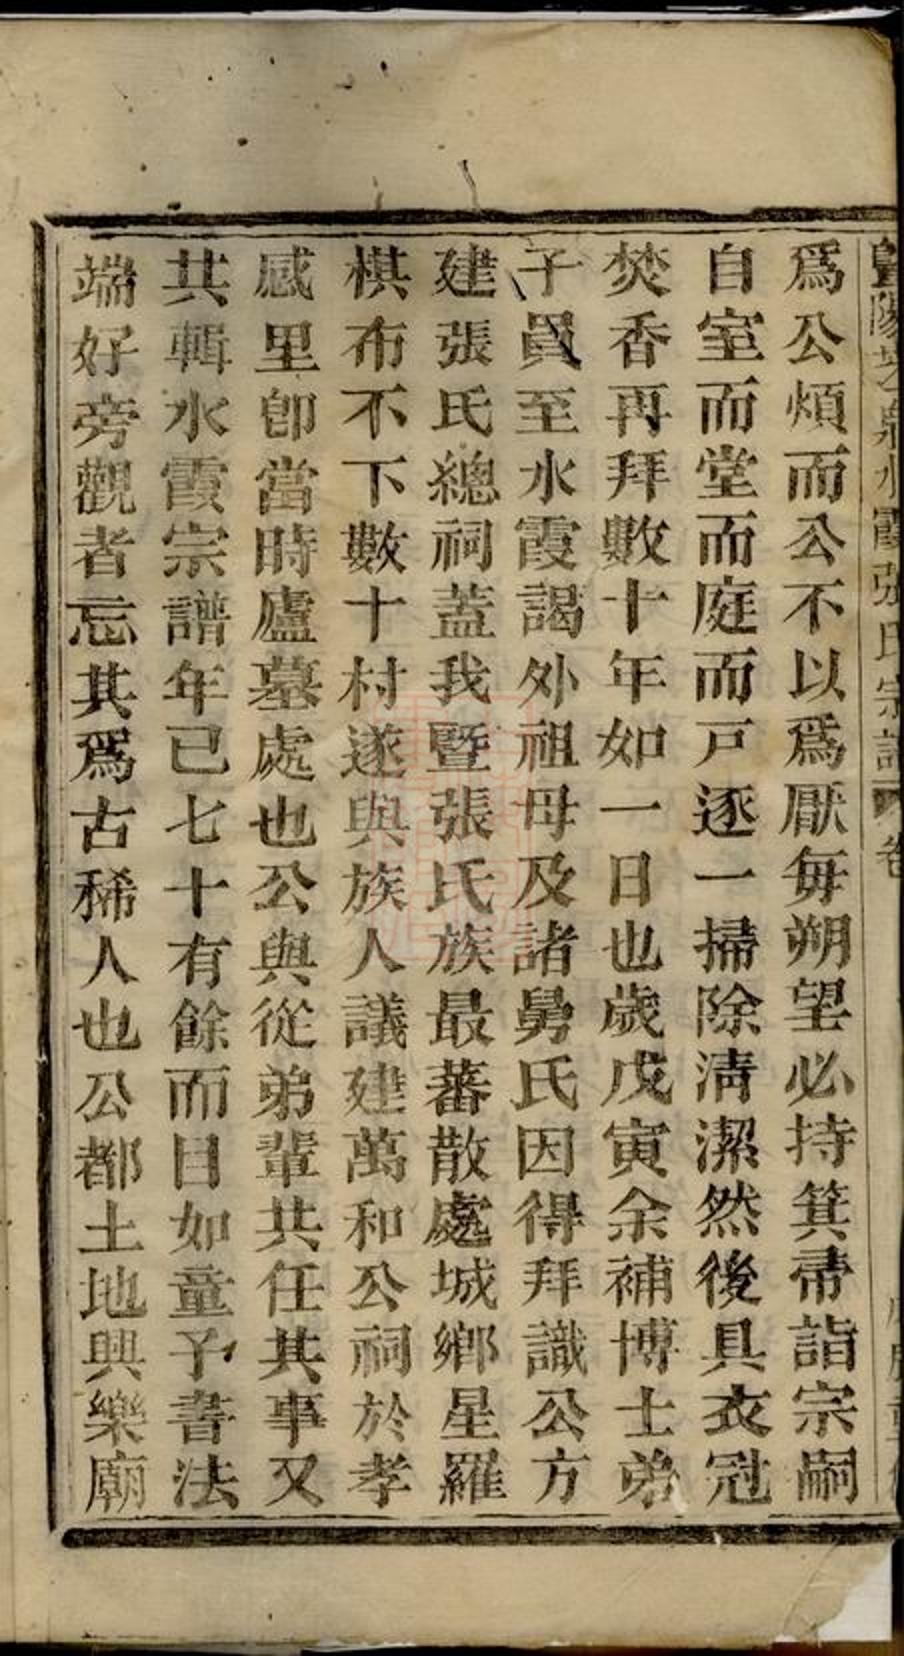 暨陽孝泉水霞張氏宗譜 卷
爲公煩而公不以爲厭每朔望必持箕帚詣宗嗣
自室而堂而庭而戸逐一掃除清潔然後具衣冠
焚香再拜數十年如一日也歲戊寅余補博士弟
子員至水霞謁外祖母及諸舅氏因得拜識公方
建張氏總祠蓋我暨張氏族最蕃散處城鄉星羅
棋布不下數十村遂與族人議建萬和公祠於孝
感里卽當時廬墓處也公與從弟輩共任其事又
共輯水霞宗譜年已七十有餘而目如童予書法
端好旁觀者忘其爲古稀人也公都土地興樂廟